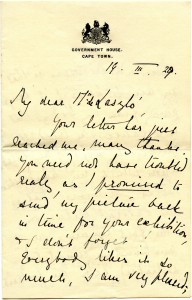 GOVERNMENT HOUSE.
CAPE TOWN.
19. III. 29.
My dear Mr de Laszló
Your letter has just
reached me, many thanks.
You need not have troubled
really as I promised to
send my picture back
in time for your exhibition
& I don't forget!
Everybody likes it so
much, I am very pleased,